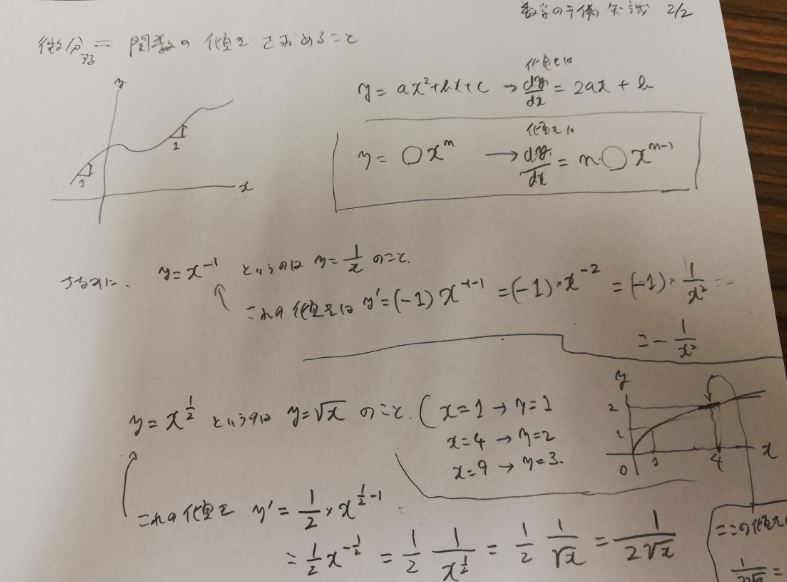 数学の予備知識 2/2
微分する = 関数の傾きをもとめること
y
1
1
x
y = ax²+bx+c → 傾きは dy/dx = 2ax + b
y = ○xⁿ → 傾きは dy/dx = n·○xⁿ⁻¹
ちなみに、 y = x⁻¹ というのは y = 1/x のこと
これの傾きは y' = (-1) x⁻¹⁻¹ = (-1)×x⁻² = (-1)× 1/x²
= - 1/x²
y = x^(1/2) というのは y = √x のこと. ( x=1 → y=1
x=4 → y=2
x=9 → y=3.
y
2
1
0 1 4 x
これの傾きは y' = 1/2 × x^(1/2 -1)
= 1/2 x^(-1/2) = 1/2 1/x^(1/2) = 1/2 1/√x = 1/(2√x)
ここの傾き